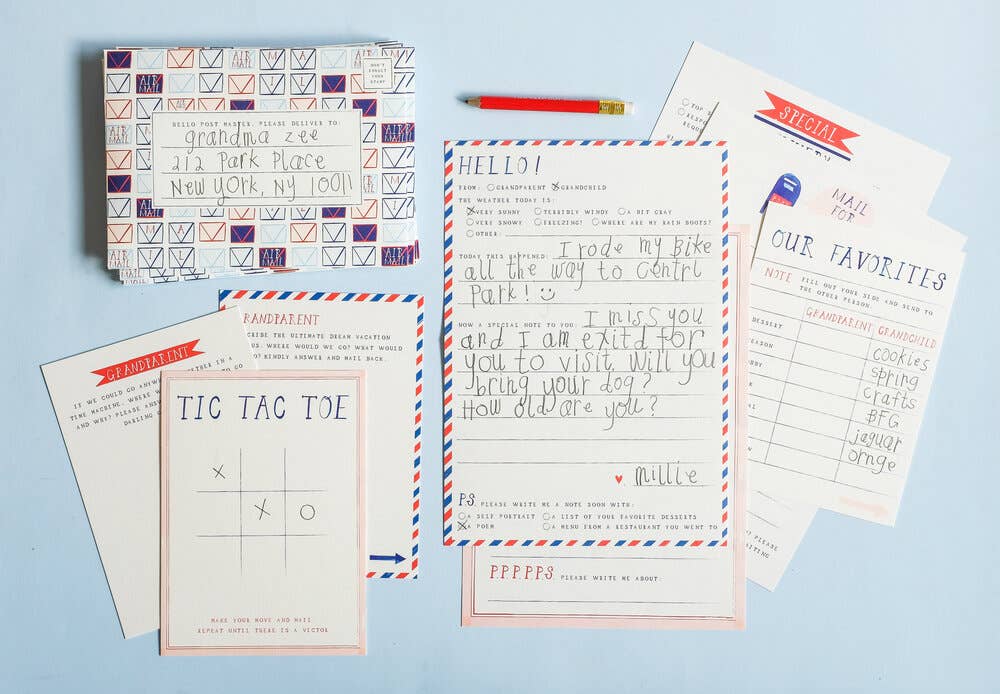 DON'T
FORGET
YOUR
STAMP
HELLO POST MASTER, PLEASE DELIVER TO:
grandma zee
212 Park Place
New York, NY 10011
AIR MAIL
HELLO!
FROM: GRANDPARENT GRANDCHILD
THE WEATHER TODAY IS:
VERY SUNNY TERRIBLY WINDY A BIT GRAY
VERY SNOWY FREEZING! WHERE ARE MY RAIN BOOTS?
OTHER:
TODAY THIS HAPPENED: I rode my Bike
all the way to Centrl
Park!
NOW A SPECIAL NOTE TO YOU: I miss you
and I am exitd for
you to visit. will you
bring your dog?
How old are you?
♥ millie
P.S. PLEASE WRITE ME A NOTE SOON WITH:
A SELF PORTRAIT A LIST OF YOUR FAVORITE DESSERTS
X A POEM A MENU FROM A RESTAURANT YOU WENT TO
P.P.P.P.P.S. PLEASE WRITE ME ABOUT:
SPECIAL
MAIL
FOR
OUR FAVORITES
NOTE FILL OUT YOUR SIDE AND SEND TO
THE OTHER PERSON.
GRANDPARENT GRANDCHILD
DESSERT cookies
spring
crafts
BFG
jaguar
ornge
PLEASE
GRANDPARENT
IF WE COULD GO ANYW
TIME MACHINE, WHERE W
AND WHY? PLEASE ANSW
DARLING G
RANDPARENT
RIBE THE ULTIMATE DREAM VACATION
US. WHERE WOULD WE GO? WHAT WOULD
KINDLY ANSWER AND MAIL BACK.
TIC TAC TOE
X
X O
MAKE YOUR MOVE AND MAIL
REPEAT UNTIL THERE IS A VICTOR